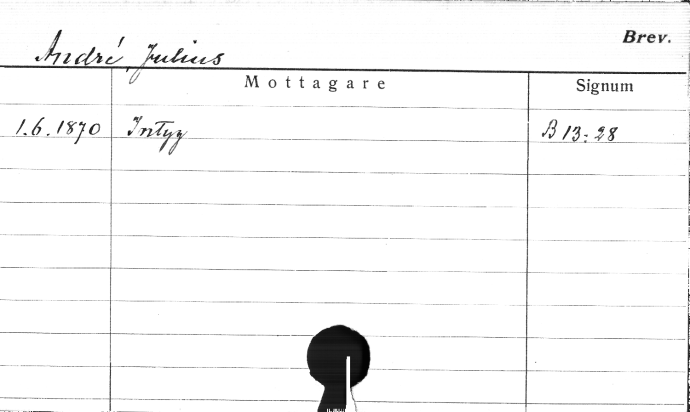 Brev.
André, Julius
Mottagare Signum
1.6.1870 Intyg B 13:28